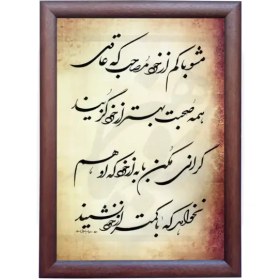 مشو با کم از خود مصاحب که عاقل
همه صحبت بهتر از خود گزیند
گرانی مکن با به از خود که او هم
نخواهد که با کمتر از خود نشیند